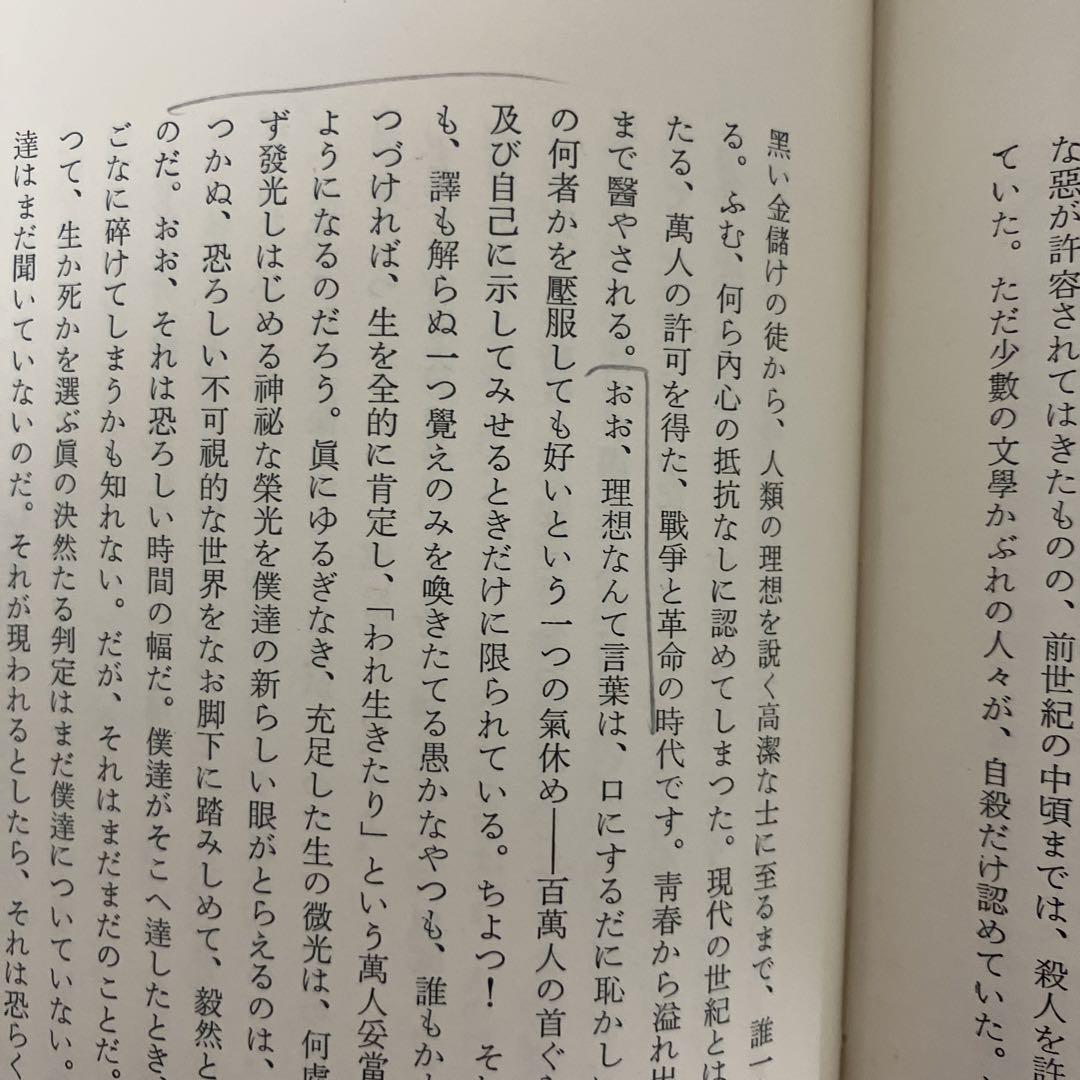 な惡が許容されてはきたものの、前世紀の中頃までは、殺人を許
ていた。ただ少數の文學かぶれの人々が、自殺だけ認めていた。
黑い金儲けの徒から、人類の理想を説く高潔な士に至るまで、誰一
る。ふむ、何ら內心の抵抗なしに認めてしまつた。現代の世紀とは
たる、萬人の許可を得た、戰爭と革命の時代です。靑春から溢れ出
まで醫やされる。おお、理想なんて言葉は、口にするだに恥かし
の何者かを壓服しても好いという一つの氣休め――百萬人の首ぐ
及び自己に示してみせるときだけに限られている。ちよつ！　そ
も、譯も解らぬ一つ覺えのみを喚きたてる愚かなやつも、誰もか
つづければ、生を全的に肯定し、「われ生きたり」という萬人妥當
ようになるのだろう。眞にゆるぎなき、充足した生の微光は、何處
ず發光しはじめる神祕な榮光を僕達の新らしい眼がとらえるのは、
つかぬ、恐ろしい不可視的な世界をなお脚下に踏みしめて、毅然と
のだ。おお、それは恐ろしい時間の幅だ。僕達がそこへ達したとき、
ごなに碎けてしまうかも知れない。だが、それはまだまだのことだ。
つて、生か死かを選ぶ眞の決然たる判定はまだ僕達についていない。
達はまだ聞いていないのだ。それが現われるとしたら、それは恐らく